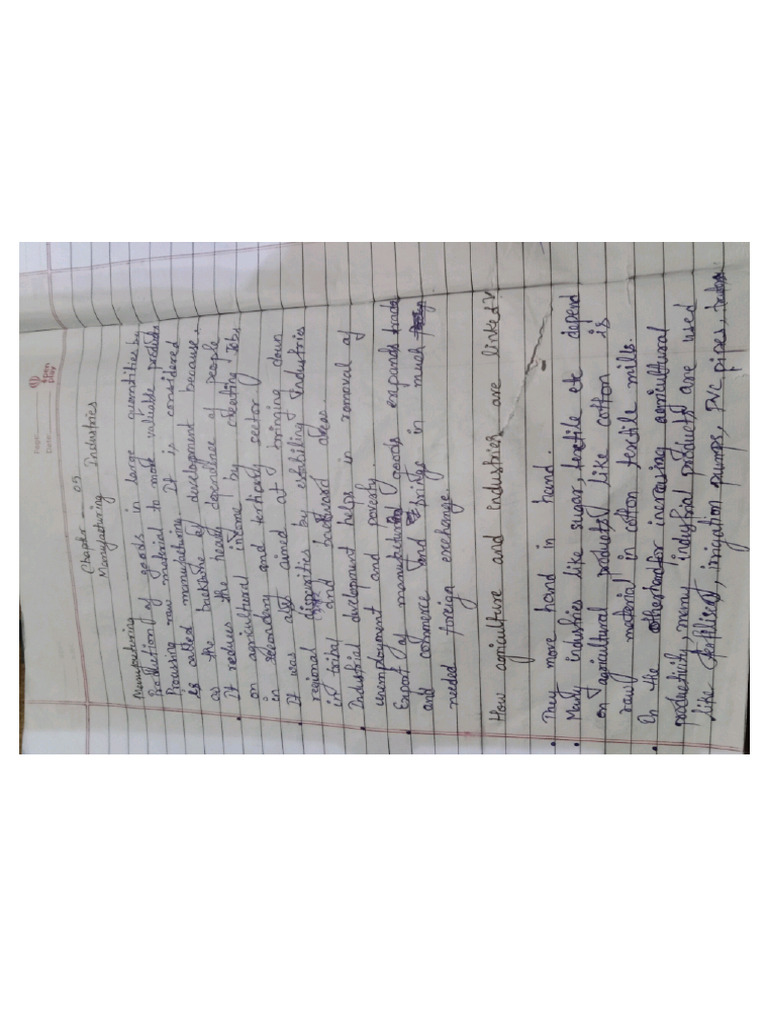 Page:
Date:
Chapter - 05
Manufacturing Industries
Manufacturing
Production of goods in large quantities by
Procising raw material to more valuable products
is called manufacturing. It is considered
as the backbone of development because.
It reduces the heavily dependence of people
on agricultural income by creating Jobs
in secondary and tertiary sector
It was also aimed at bringing down
regional disparities by establishing Industries
in tribal and backward areas.
Industrial development helps in removal of
unemployment and poverty.
Export of manufactured goods expands trade
and commerce and brings in much
needed foreign exchange.
How agriculture and industries are linked?
They move hand in hand.
Many industries like sugar, textile etc depend
on agricultural products like cotton is
raw material in cotton textile mills.
On the other hand for increasing agricultural
productivity, many industrial products are used
like fertilisers, irrigation pumps, PVC pipes,